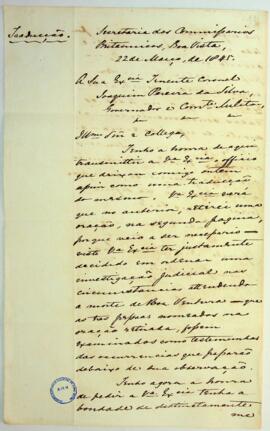 Traducção.
Secretaria dos Commissarios
Britannicos, Boa Vista,
22 de Março, de 1845.
A Sua Exª Tenente Coronel
Joaquim Pereira da Silva,
Governador e
Illmo Snr e Collega,
Tenho a honra de aqui
transmittir a Vª Excia, officio
que deixou comigo ontem
assim como uma traducção
do mesmo. Vª Excia verá
que no anterior, alterei uma
oração, na segunda pagina,
porque veio a ser necessario
visto Vª Excia ter justamente
decidido em ordenar uma
investigação judicial nas
circumstancias attendendo
a morte de Boa Ventura - que
as tas pessoas nomeadas na
oração retirada, fossem
examinadas como testemunhas
das occurrencias que
debaixo de sua observação.
Tenho agora a honra
de pedir a Vª Excia tenha a
bondade de
me